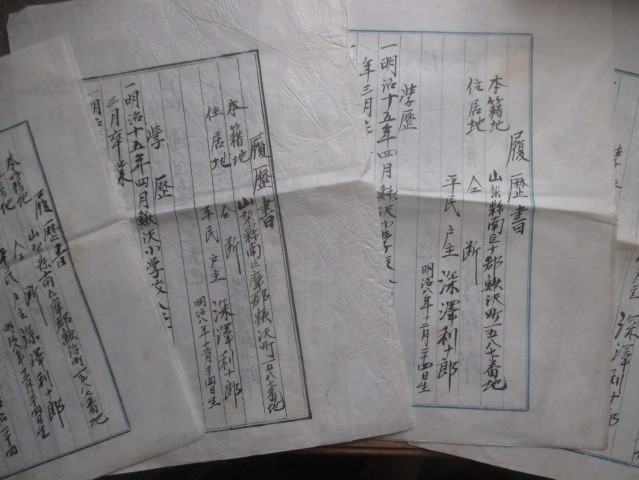 履歴書
本籍地 山梨縣南巨摩郡鰍沢町一五八七番地
住居地 仝 断
平民 戸主 深澤利十郎
明治八年十二月二十四日生
学歴
一明治十五年四月鰍沢小学校
年三月
履歴書
本籍地 山梨縣南巨摩郡鰍沢町一五八七番地
住居地 仝 断
平民 戸主 深澤利十郎
明治八年十二月二十四日生
学歴
一明治十五年四月鰍沢小学校入
三月卒業
一明治
履歴書
本籍地 山梨縣南巨摩郡鰍沢町一五八七番地
住居地 仝 断
平民 戸主 深澤利十郎
深澤